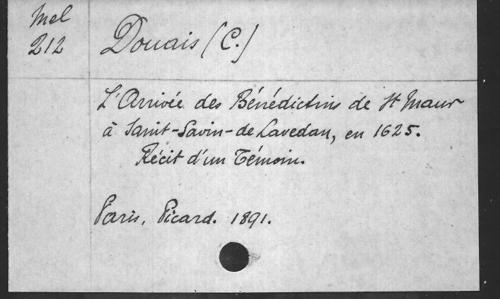 Mel
212
Douais (C.)
L'Arrivée des Bénédictins de St Maur
à Saint-Savin-de Lavedan, en 1625.
Récit d'un Témoin.
Paris, Picard. 1891.